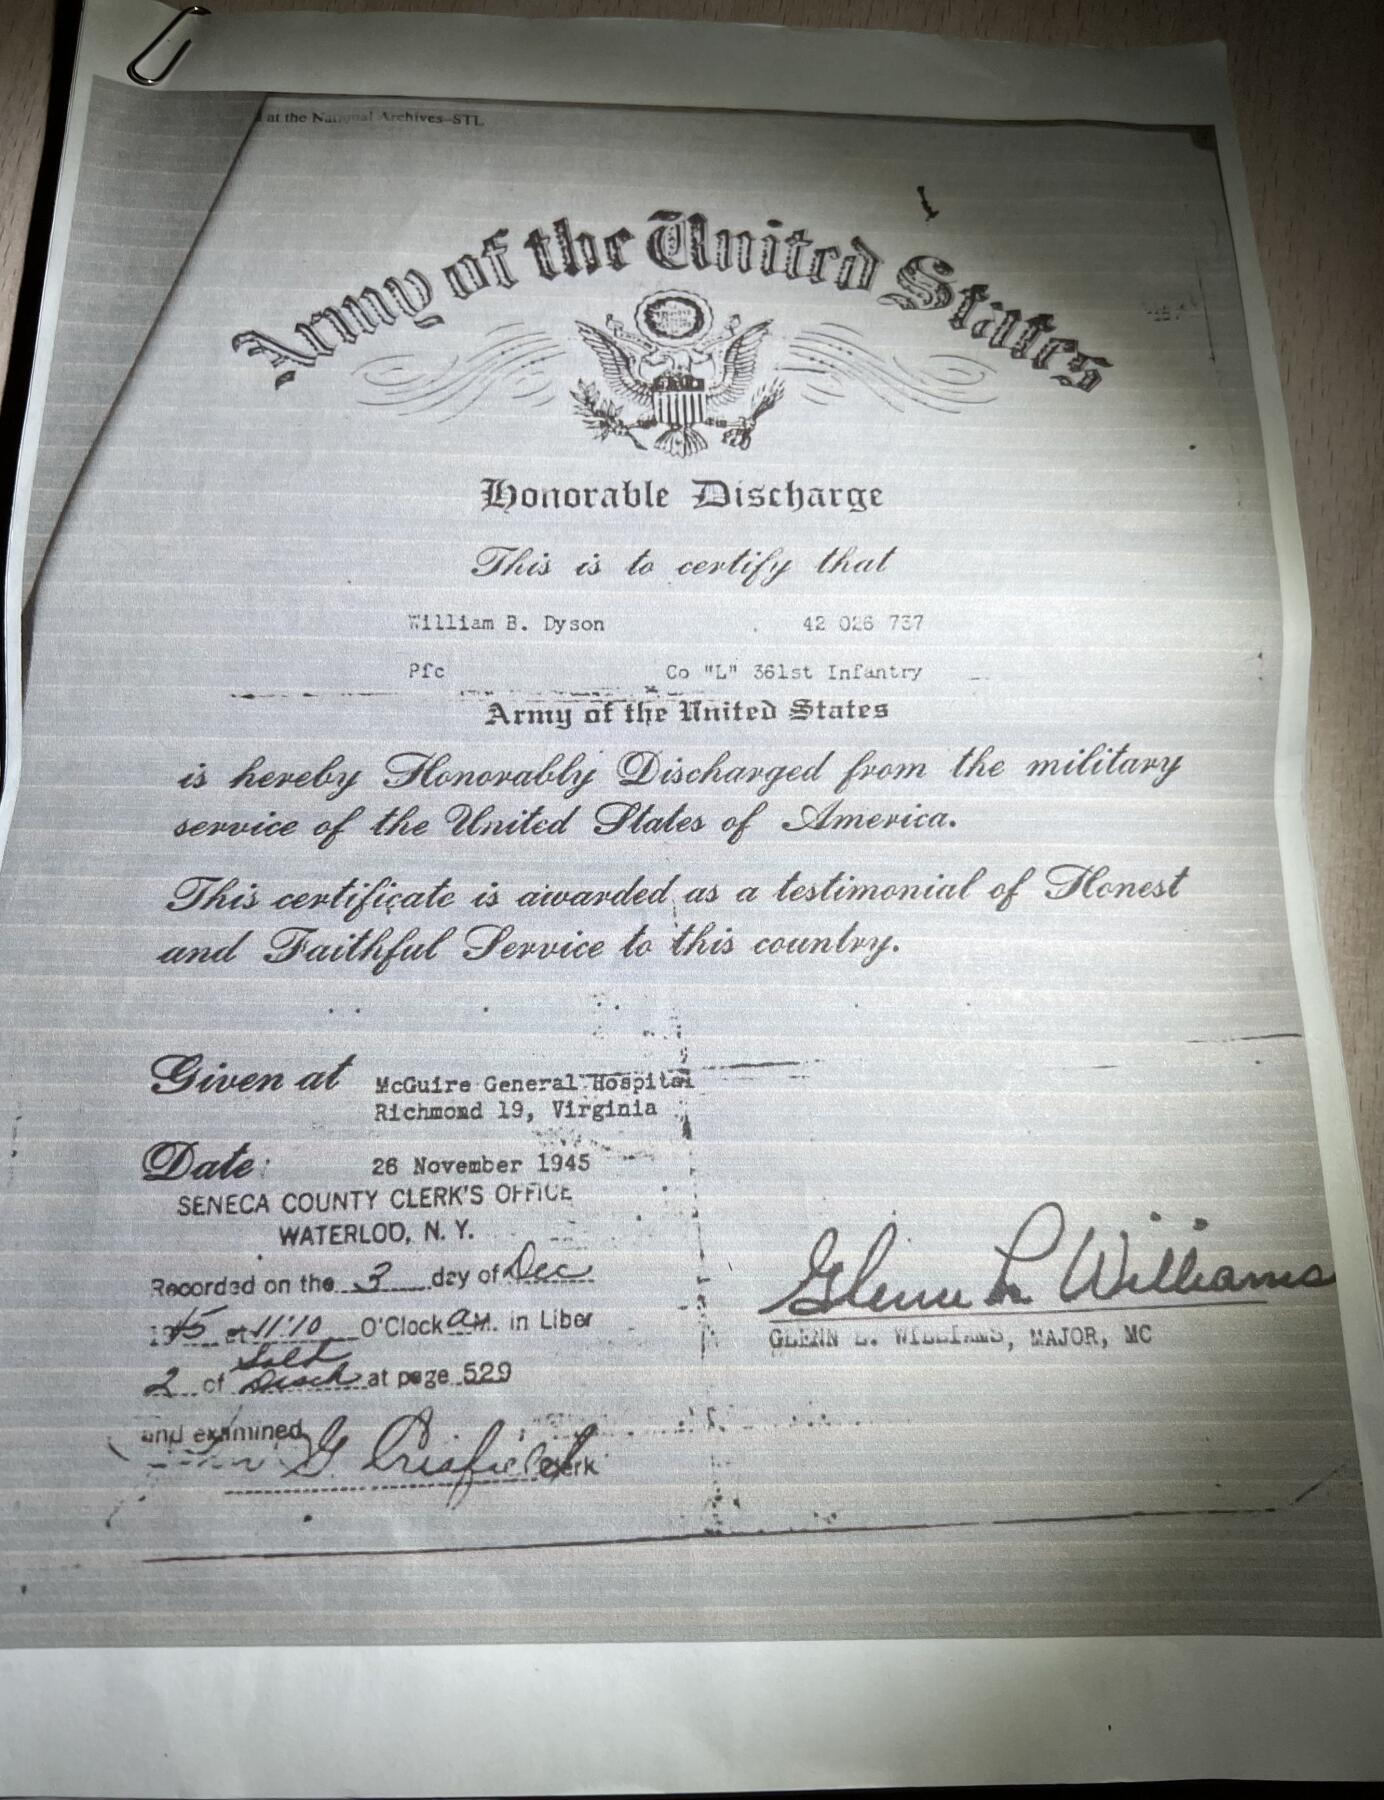 at the National Archives-STL
Army of the United States
Honorable Discharge
This is to certify that
William B. Dyson 42 026 737
Pfc Co "L" 361st Infantry
Army of the United States
is hereby Honorably Discharged from the military
service of the United States of America.
This certificate is awarded as a testimonial of Honest
and Faithful Service to this country.
Given at McGuire General Hospital
Richmond 19, Virginia
Date: 26 November 1945
SENECA COUNTY CLERK'S OFFICE
WATERLOO, N. Y.
Recorded on the 3 day of Dec
1945 at 11:10 O'Clock A.M. in Liber
2 of Sold Disch at page 529
and examined
G. Clerk
Glenn L. Williams
GLENN L. WILLIAMS, MAJOR, MC